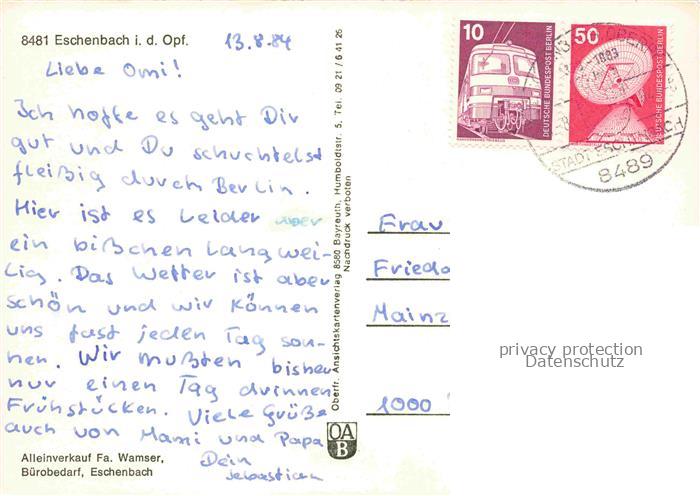 8481 Eschenbach i. d. Opf.
13.8.84
Liebe Omi!
Ich hoffe es geht Dir
gut und Du schuchtelst
fleißig durch Berlin.
Hier ist es leider aber
ein bißchen langwei-
lig. Das Wetter ist aber
schön und wir können
uns fast jeden Tag son-
nen. Wir mußten bisher
nur einen Tag drinnen
Frühstücken. Viele Grüße
auch von Mami und Papa
Dein
Sebastian
Alleinverkauf Fa. Wamser,
Bürobedarf, Eschenbach
Oberfr. Ansichtskartenverlag 8580 Bayreuth, Humboldtstr. 5, Tel. 09 21 / 6 41 26
Nachdruck verboten
OA
B
10
DEUTSCHE BUNDESPOST BERLIN
50
DEUTSCHE BUNDESPOST BERLIN
STADT ESCHENBACH
8489
Frau
Friedo
Mainz
1000
privacy protection
Datenschutz